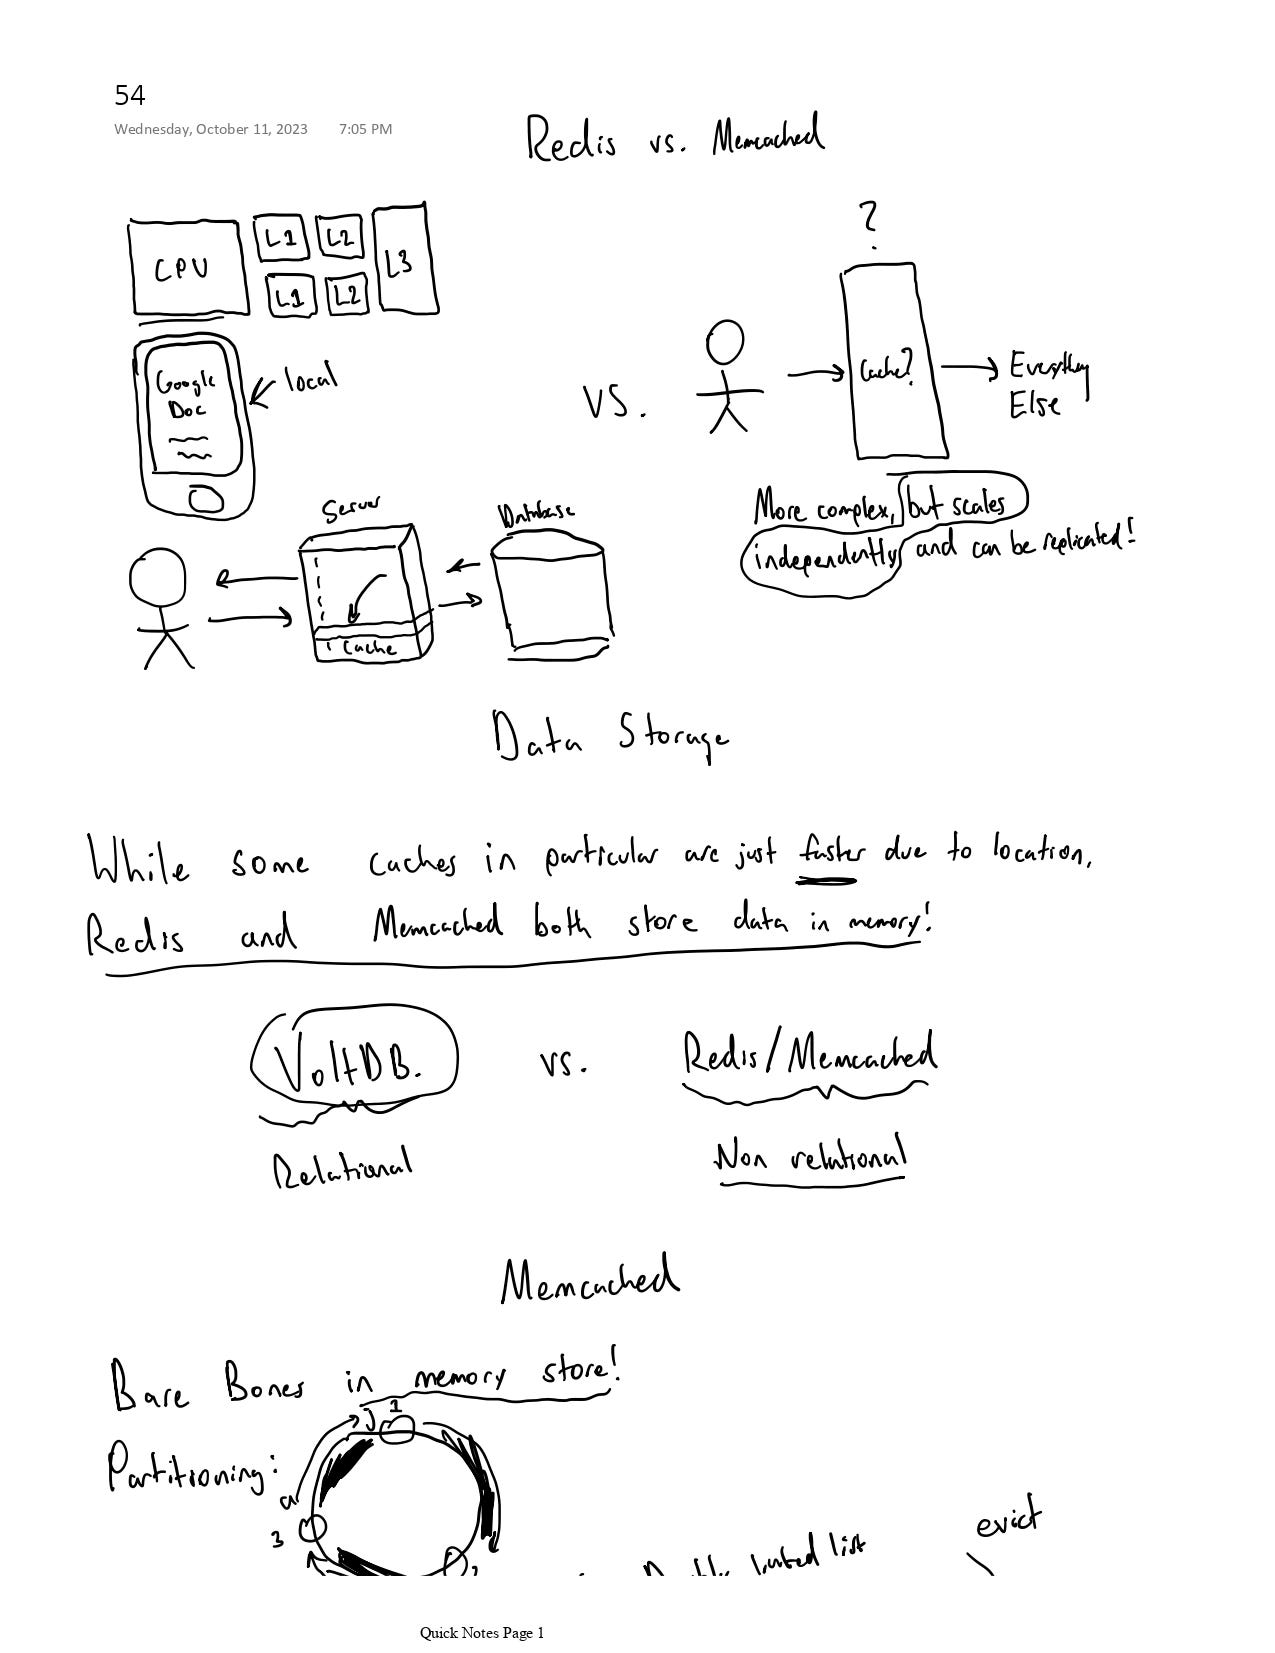 54
Wednesday, October 11, 2023 7:05 PM
Redis vs. Memcached
CPU
L1 L2
L3
L1 L2
Google
Doc
local
vs.
?
Cache?
Everything
Else
More complex, but scales
independently and can be replicated!
Server
Database
Cache
Data Storage
While some caches in particular are just faster due to location,
Redis and Memcached both store data in memory!
VoltDB. vs. Redis/Memcached
Relational Non relational
Memcached
Bare Bones in memory store!
Partitioning:
1
a
3
2
linked list
evict
Quick Notes Page 1